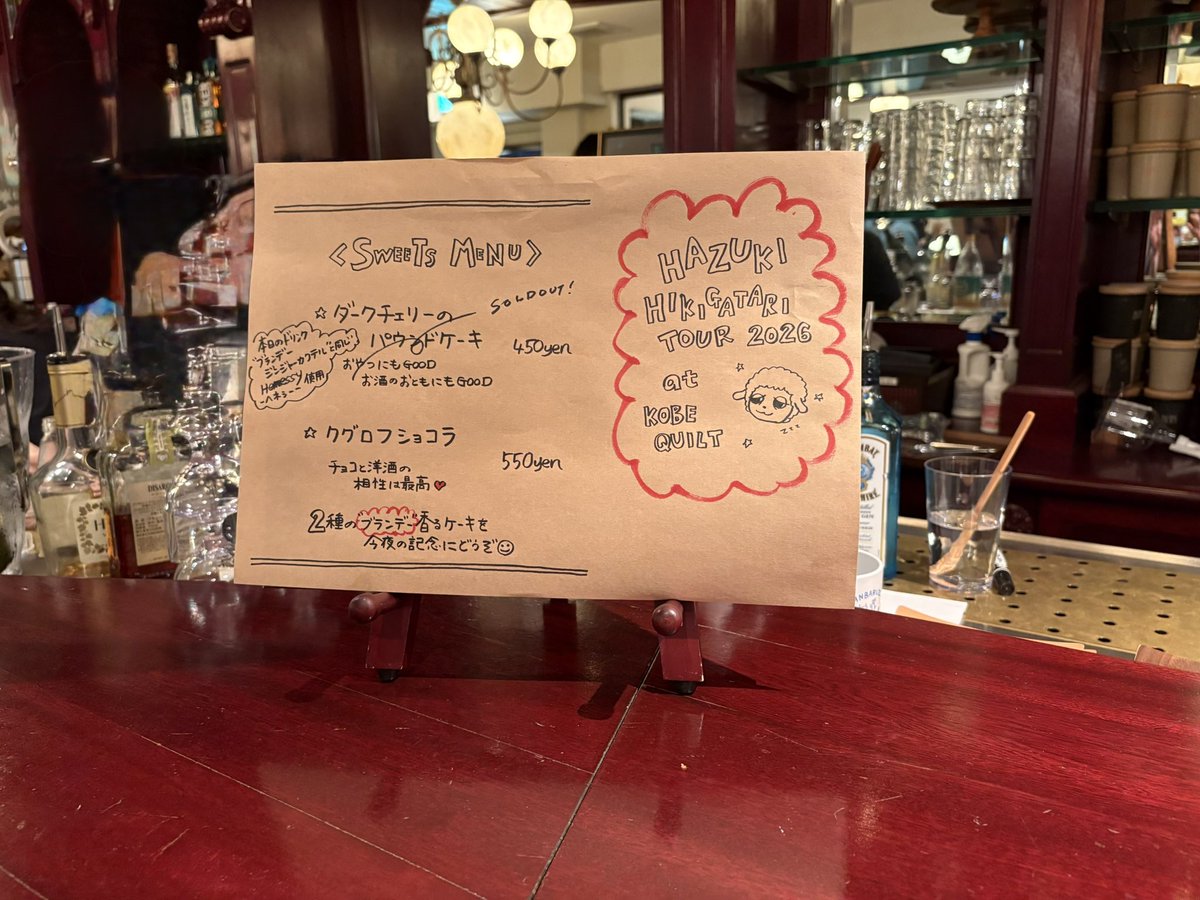 <SWEETS MENU>
SOLDOUT!
☆ダークチェリーの
パウンドケーキ 450yen
おやつにもGOOD
お酒のおともにもGOOD
本日のドリンク
"ブランデー
ジンジャーカクテル"と同じ
使用
☆クグロフショコラ
550yen
チョコと洋酒の
相性は最高♥
2種のブランデー香るケーキを
今夜の記念にどうぞ☺
HAZUKI
HIKIGATARI
TOUR 2026
at
KOBE
QUILT
zzz